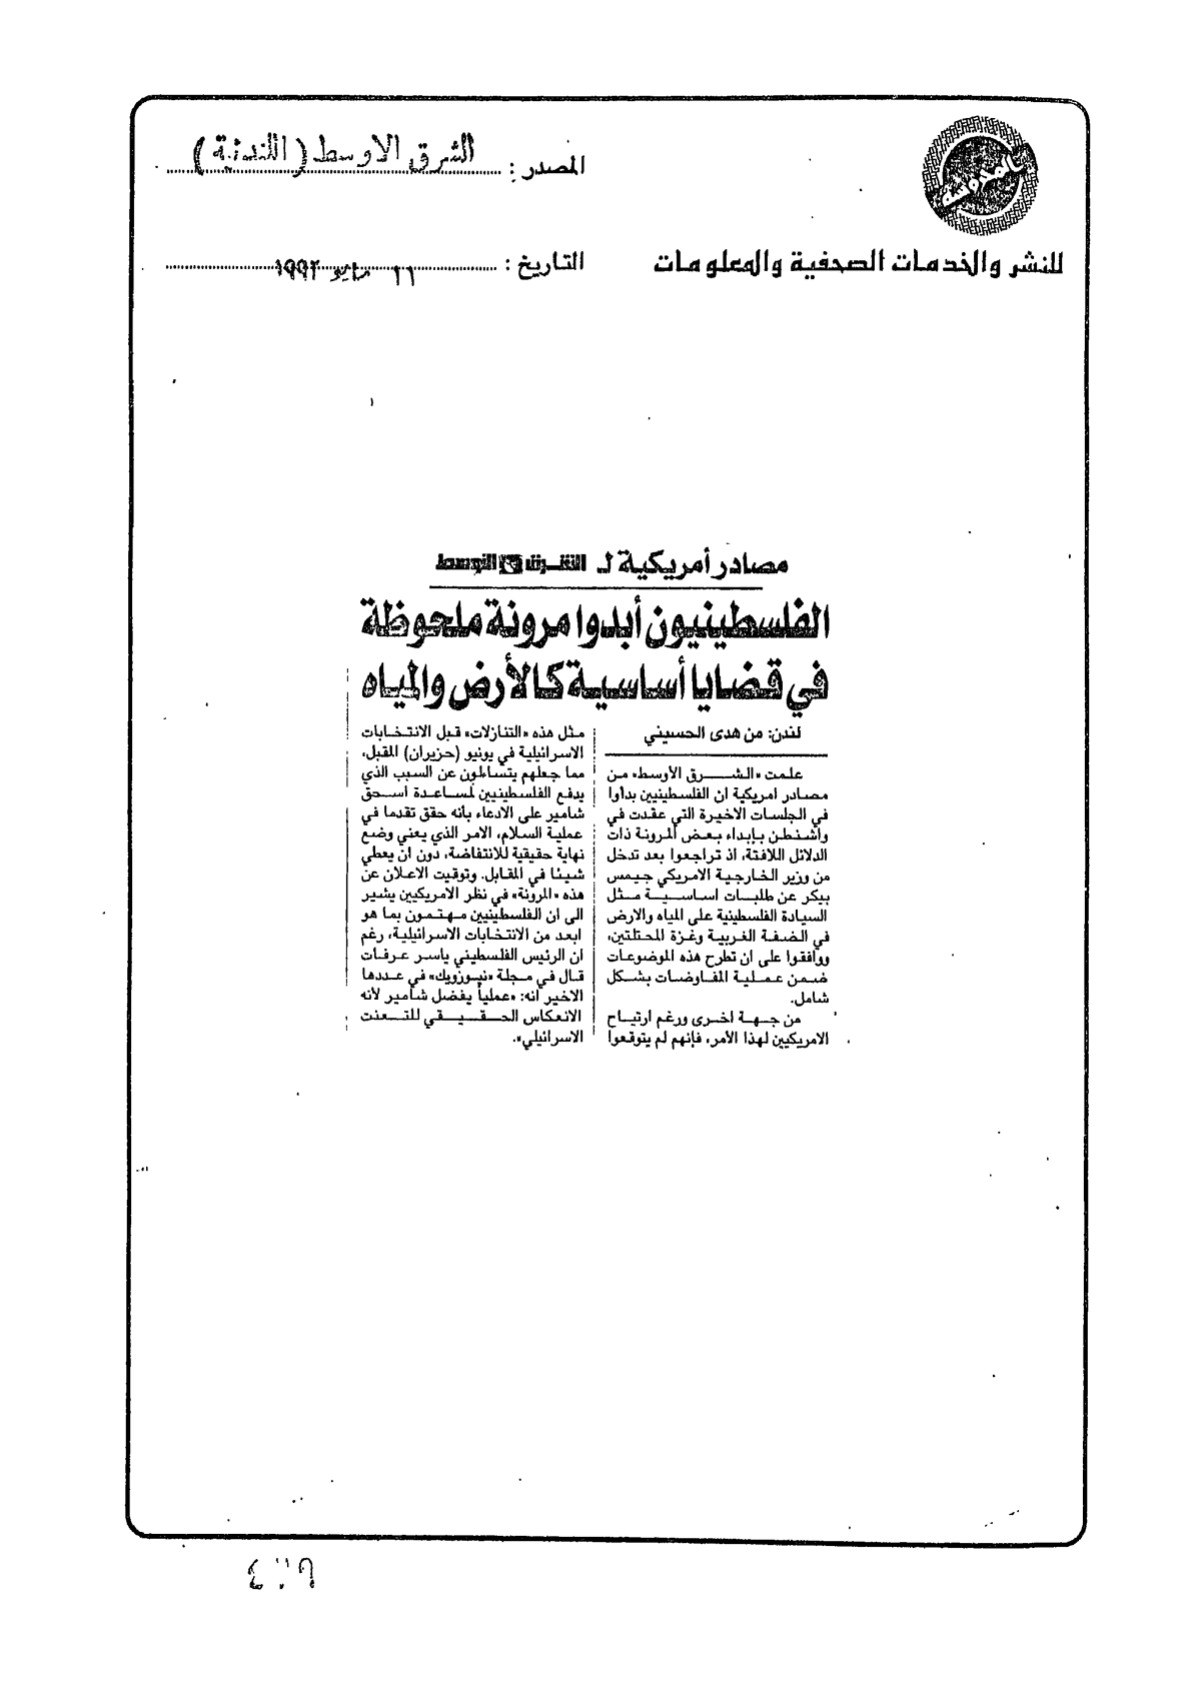 المصدر : الشرق الاوسط (اللندنية)
للنشر والخدمات الصحفية والمعلومات
التاريخ : ١٦ مايو ١٩٩٢
مصادر أمريكية لـ الشرق الأوسط
الفلسطينيون أبدوا مرونة ملحوظة
في قضايا أساسية كالأرض والمياه
لندن: من هدى الحسيني
علمت «الشرق الأوسط» من
مصادر امريكية ان الفلسطينيين بداوا
في الجلسات الاخيرة التي عقدت في
واشنطن بإبداء بعض المرونة ذات
الدلائل اللافتة، اذ تراجعوا بعد تدخل
من وزير الخارجية الامريكي جيمس
بيكر عن طلبات اساسية مثل
السيادة الفلسطينية على المياه والارض
في الضفة الغربية وغزة المحتلتين،
ووافقوا على ان تطرح هذه الموضوعات
ضمن عملية المفاوضات بشكل
شامل.
من جهة اخرى ورغم ارتياح
الامريكيين لهذا الأمر، فإنهم لم يتوقعوا
مثل هذه «التنازلات» قبل الانتخابات
الاسرائيلية في يونيو (حزيران) المقبل،
مما جعلهم يتساءلون عن السبب الذي
يدفع الفلسطينيين لمساعدة اسحق
شامير على الادعاء بأنه حقق تقدما في
عملية السلام، الامر الذي يعني وضع
نهاية حقيقية للانتفاضة، دون ان يعطي
شيئا في المقابل. وتوقيت الاعلان عن
هذه «المرونة» في نظر الامريكيين يشير
الى ان الفلسطينيين مهتمون بما هو
ابعد من الانتخابات الاسرائيلية، رغم
ان الرئيس الفلسطيني ياسر عرفات
قال في مجلة «نيوزويك» في عددها
الاخير انه: «عملياً يفضل شامير لانه
الانعكاس الحقيقي للتعنت
الاسرائيلي».